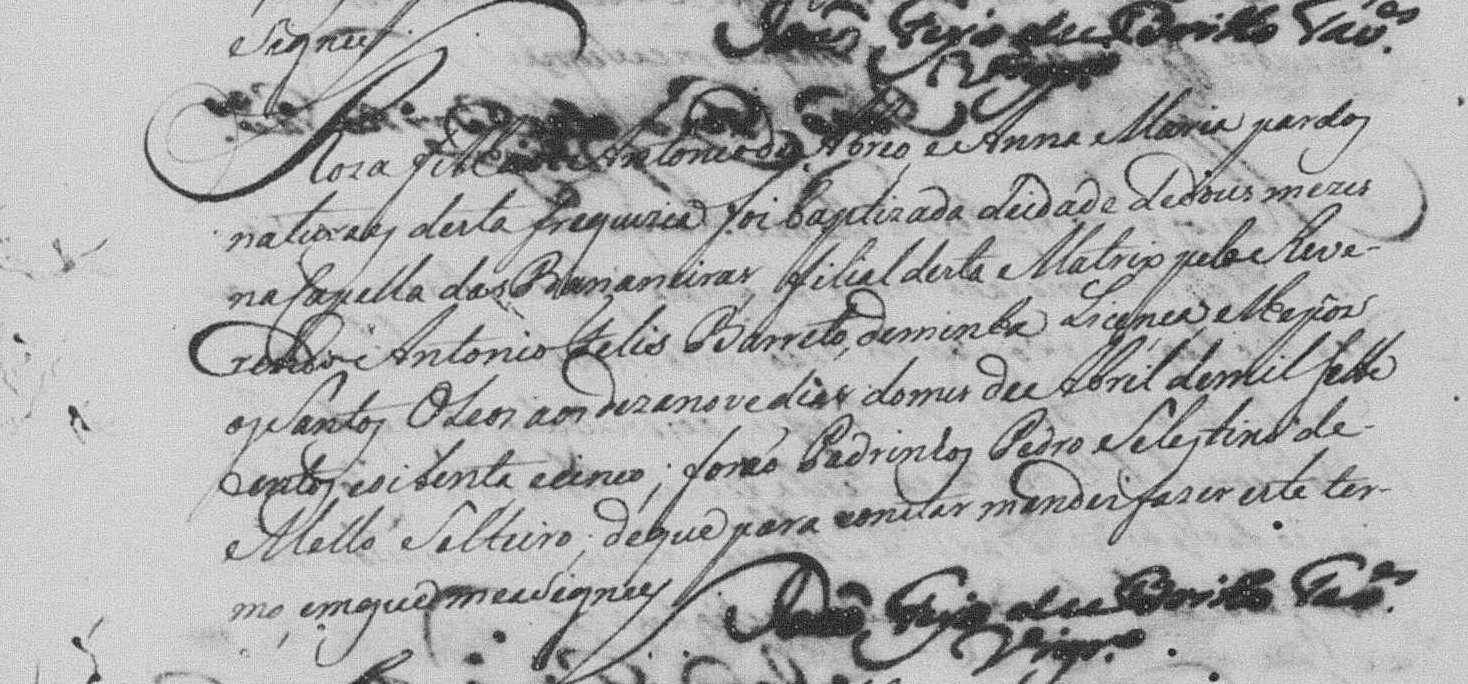 e Signey
João Feyo de Britto Tav.es
Vigr.o
Roza filha de Antonio de Abreo, e Anna Maria pardos
naturaes desta freguezia foi baptizada deidade dedous mezes
na Capella das Bananeiras filial desta Matrix pelo Reve-
rendo Antonio Felis Barreto, deminha Licença e lhe pôs
os Santos Oleos aos dezanove dias domes de Abril demil sette
centos eoitenta ecinco; foraõ Padrinhos Pedro e Selestino de
Mello Solteiro; deque para constar mandei fazer este ter-
mo, emque me asigney
João Feyo de Britto Tav.es
Vigr.o